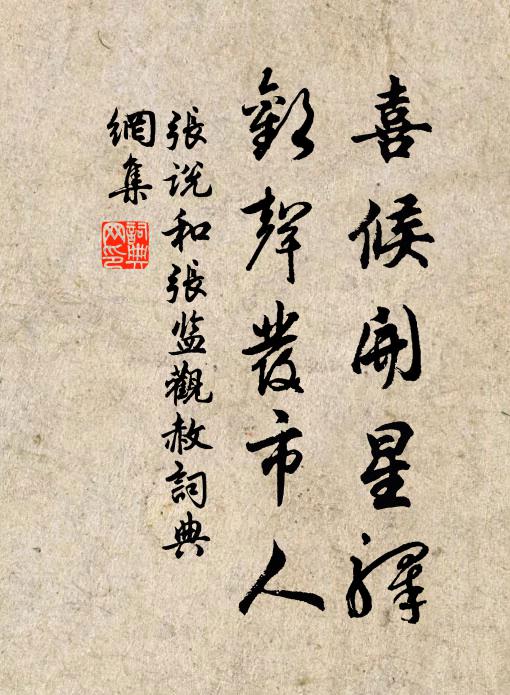 喜候開星驛
歡聲發市人
張說和張监觀赦詞典
網集
詞典
网印